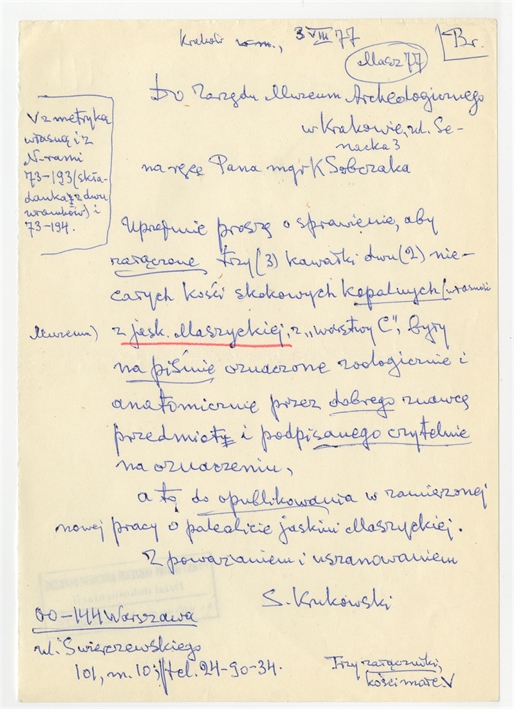 Kraków w m., 3 VIII 77
Masz 77
Br.
Do Zarządu Muzeum Archeologicznego
w Krakowie, ul. Se-
nacka 3
na ręce Pana mgr K Sobczaka
V z metryką
własną i z
N-rami
73-193 (skła-
danka z dwu
ułamków) i
73-194.
Uprzejmie proszę o sprawienie, aby
załączone trzy (3) kawałki dwu (2) nie-
całych kości skokowych kopalnych (własność
Muzeum) z jask. Maszyckiej, z „warstwy C”, były
na piśmie oznaczone zoologicznie i
anatomicznie przez dobrego znawcę
przedmiotu i podpisanego czytelnie
na oznaczeniu,
a to do opublikowania w zamierzonej
nowej pracy o paleolicie jaskini Maszyckiej.
Z poważaniem i uszanowaniem
S. Krukowski
00-144 Warszawa
ul. Świerczewskiego
101, m. 10; tel. 24-90-34.
Trzy załączniki,
kości małe. V